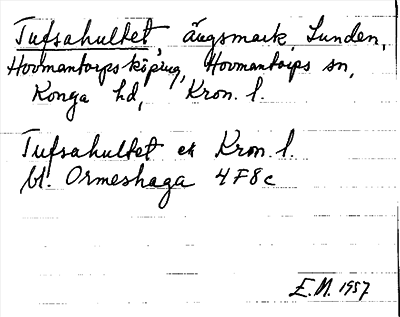 Tufsahultet, ängsmark, Lunden,
Hovmantorps köping, Hovmantorps sn,
Konga hd, Kron. l.
Tufsahultet ek Kron. l.
bl. Ormeshaga 4F8c
E.N. 1957